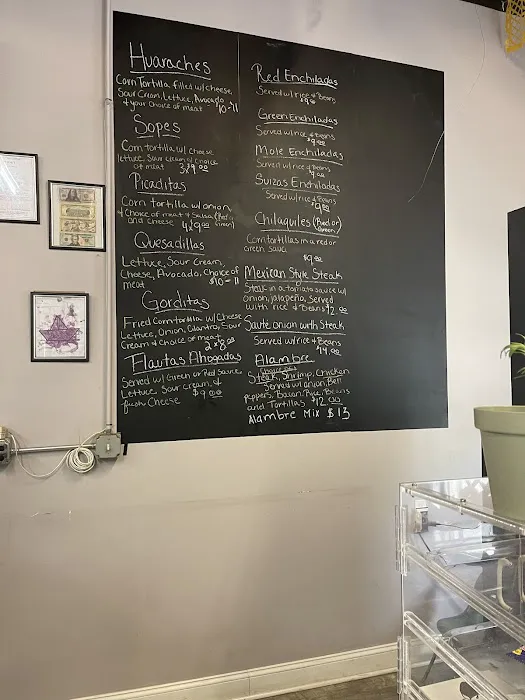 Huaraches
Corn Tortilla filled w/ cheese,
Sour Cream, Lettuce, Avocado
& your choice of meat $10-11
Sopes
Corn tortilla w/ cheese
lettuce, Sour cream & choice
of meat 3x$9.00
Picaditas
Corn tortilla w/ onion,
& choice of meat & Salsa (Red or Green)
and cheese 4x$9.00
Quesadillas
Lettuce, Sour Cream,
Cheese, Avocado, Choice of
meat $10-11
Gorditas
Fried Corn tortilla w/ Cheese
Lettuce, Onion, Cilantro, Sour
Cream & Choice of meat
2x$8.00
Flautas Ahogadas
Served w/ Green or Red Sauce
Lettuce Sour cream, &
Cheese $9.00
Red Enchiladas
Served w/ rice & Beans
$9.00
Green Enchiladas
Served w/ rice & Beans
$9.00
Mole Enchiladas
Served w/ rice & Beans
$9.00
Suizas Enchiladas
Served w/ rice & Beans
Chilaquiles (Red or Green)
Corn tortillas in a red or
green sauce
$9.00
Mexican Style Steak
Steak in a tomato sauce w/
onion, jalapeño, Served
with rice & Beans $12.00
Sauté onion with Steak
Served w/ rice & Beans
$14.00
Alambre
Steak, Shrimp, Chicken
Served w/ onion, Bell
peppers, Bacon, Rice, Beans
and Tortillas $12.00
Alambre Mix $13